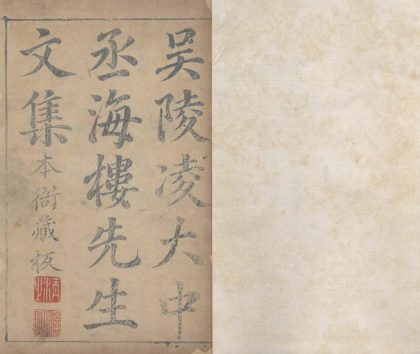 吴陵凌大中
丞海樓先生
文集
本衙藏板